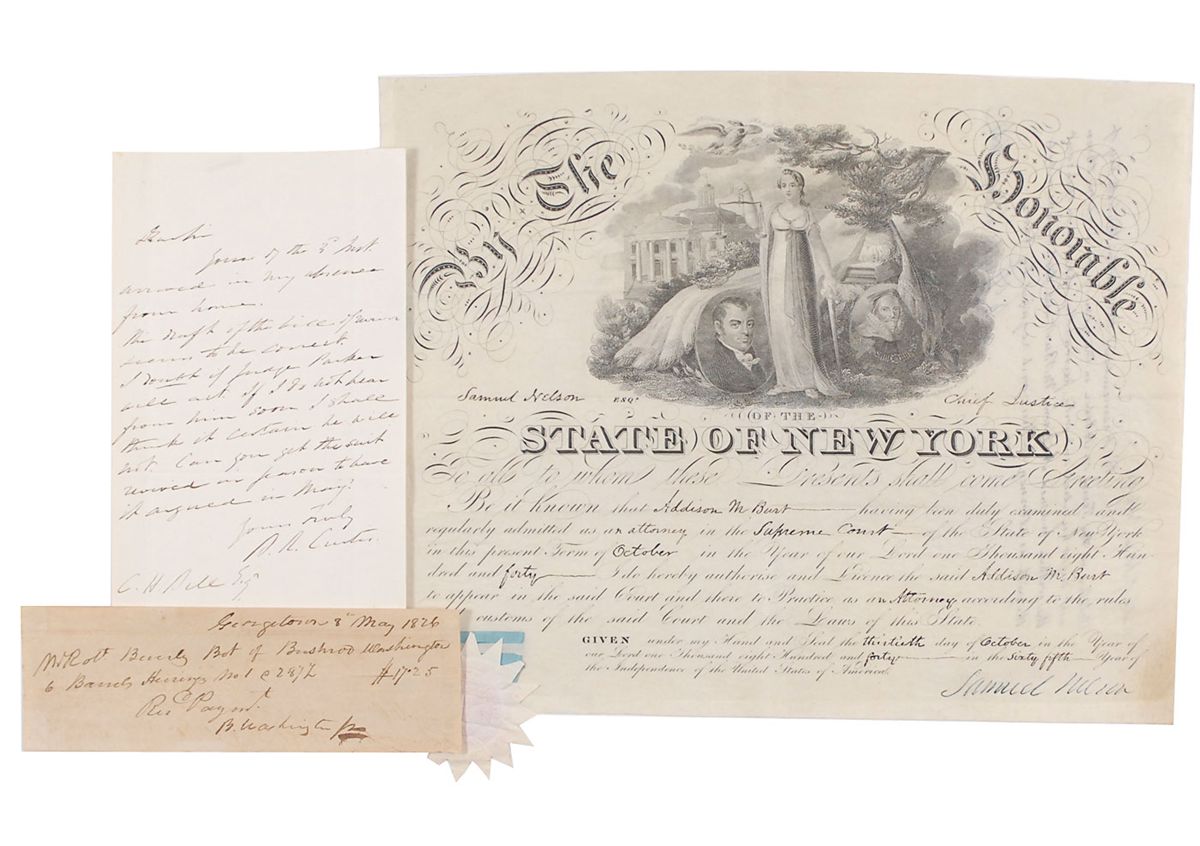 Dear Sir
Yours of the 8th inst
arrived in my absence
from home.
The draft of the bill of
seems to be correct
I doubt if Judge Parker
will act. If I do not hear
from him soon I shall
think it certain he will
not. Can you get the suit
revived in season to have
it argued in May?
Yours truly
B. R. Curtis
C. H. Esqr
Georgetown 8th May 1826
Mr Robt Beverly Bot of Bushrod Washington
6 Barrels Herrings No 1 @ 2 87½ $17.25
Recd Paymt
B. Washington Jr
By The Honorable
Samuel Nelson ESQR Chief Justice
OF THE
STATE OF NEW YORK
To all to whom these Presents shall come Greeting
Be it known that Addison M Burt having been duly examined and
regularly admitted as an attorney in the Supreme Court of the State of New York
in this present Term of October in the Year of our Lord one Thousand eight Hun-
dred and forty I do hereby authorise and Licence the said Addison M. Burt
to appear in the said Court and there to Practice as an Attorney according to the rules
customs of the said Court and the Laws of this State.
GIVEN under my Hand and Seal the thirtieth day of October in the Year of
our Lord one Thousand eight Hundred and forty in the Sixty fifth Year of
the Independence of the United States of America.
Samuel Nelson